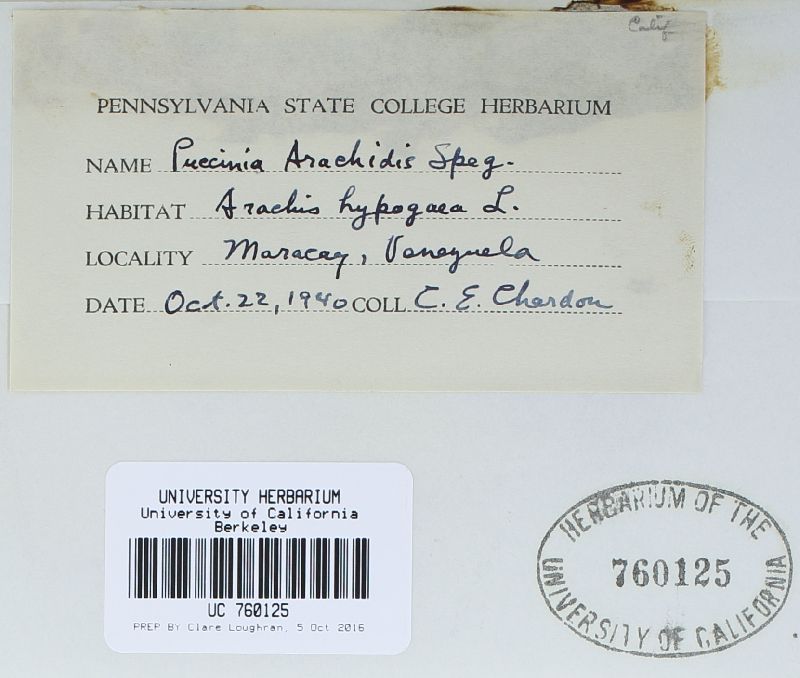 Calif
PENNSYLVANIA STATE COLLEGE HERBARIUM
NAME Puccinia Arachidis Speg.
HABITAT Arachis hypogaea L.
LOCALITY Maracay, Venezuela
DATE Oct. 22, 1940 COLL C. E. Chardon
UNIVERSITY HERBARIUM
University of California
Berkeley
UC 760125
PREP BY Clare Loughran, 5 Oct 2016
HERBARIUM OF THE
760125
UNIVERSITY OF CALIFORNIA